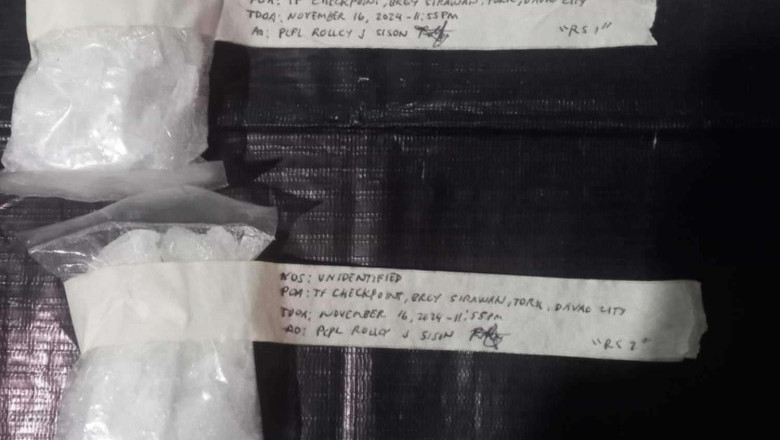 POA: TF CHECKPOINT, BRGY SIRAWAN, TORIL, DAVAO CITY
TDOA: NOVEMBER 16, 2024 - 11:55PM
AO: PCPL ROLLY J SISON
"RS 1"
NOS: UNIDENTIFIED
POA: TF CHECKPOINT, BRGY SIRAWAN, TORIL, DAVAO CITY
TDOA: NOVEMBER 16, 2024 - 11:55PM
AO: PCPL ROLLY J SISON
"RS 2"